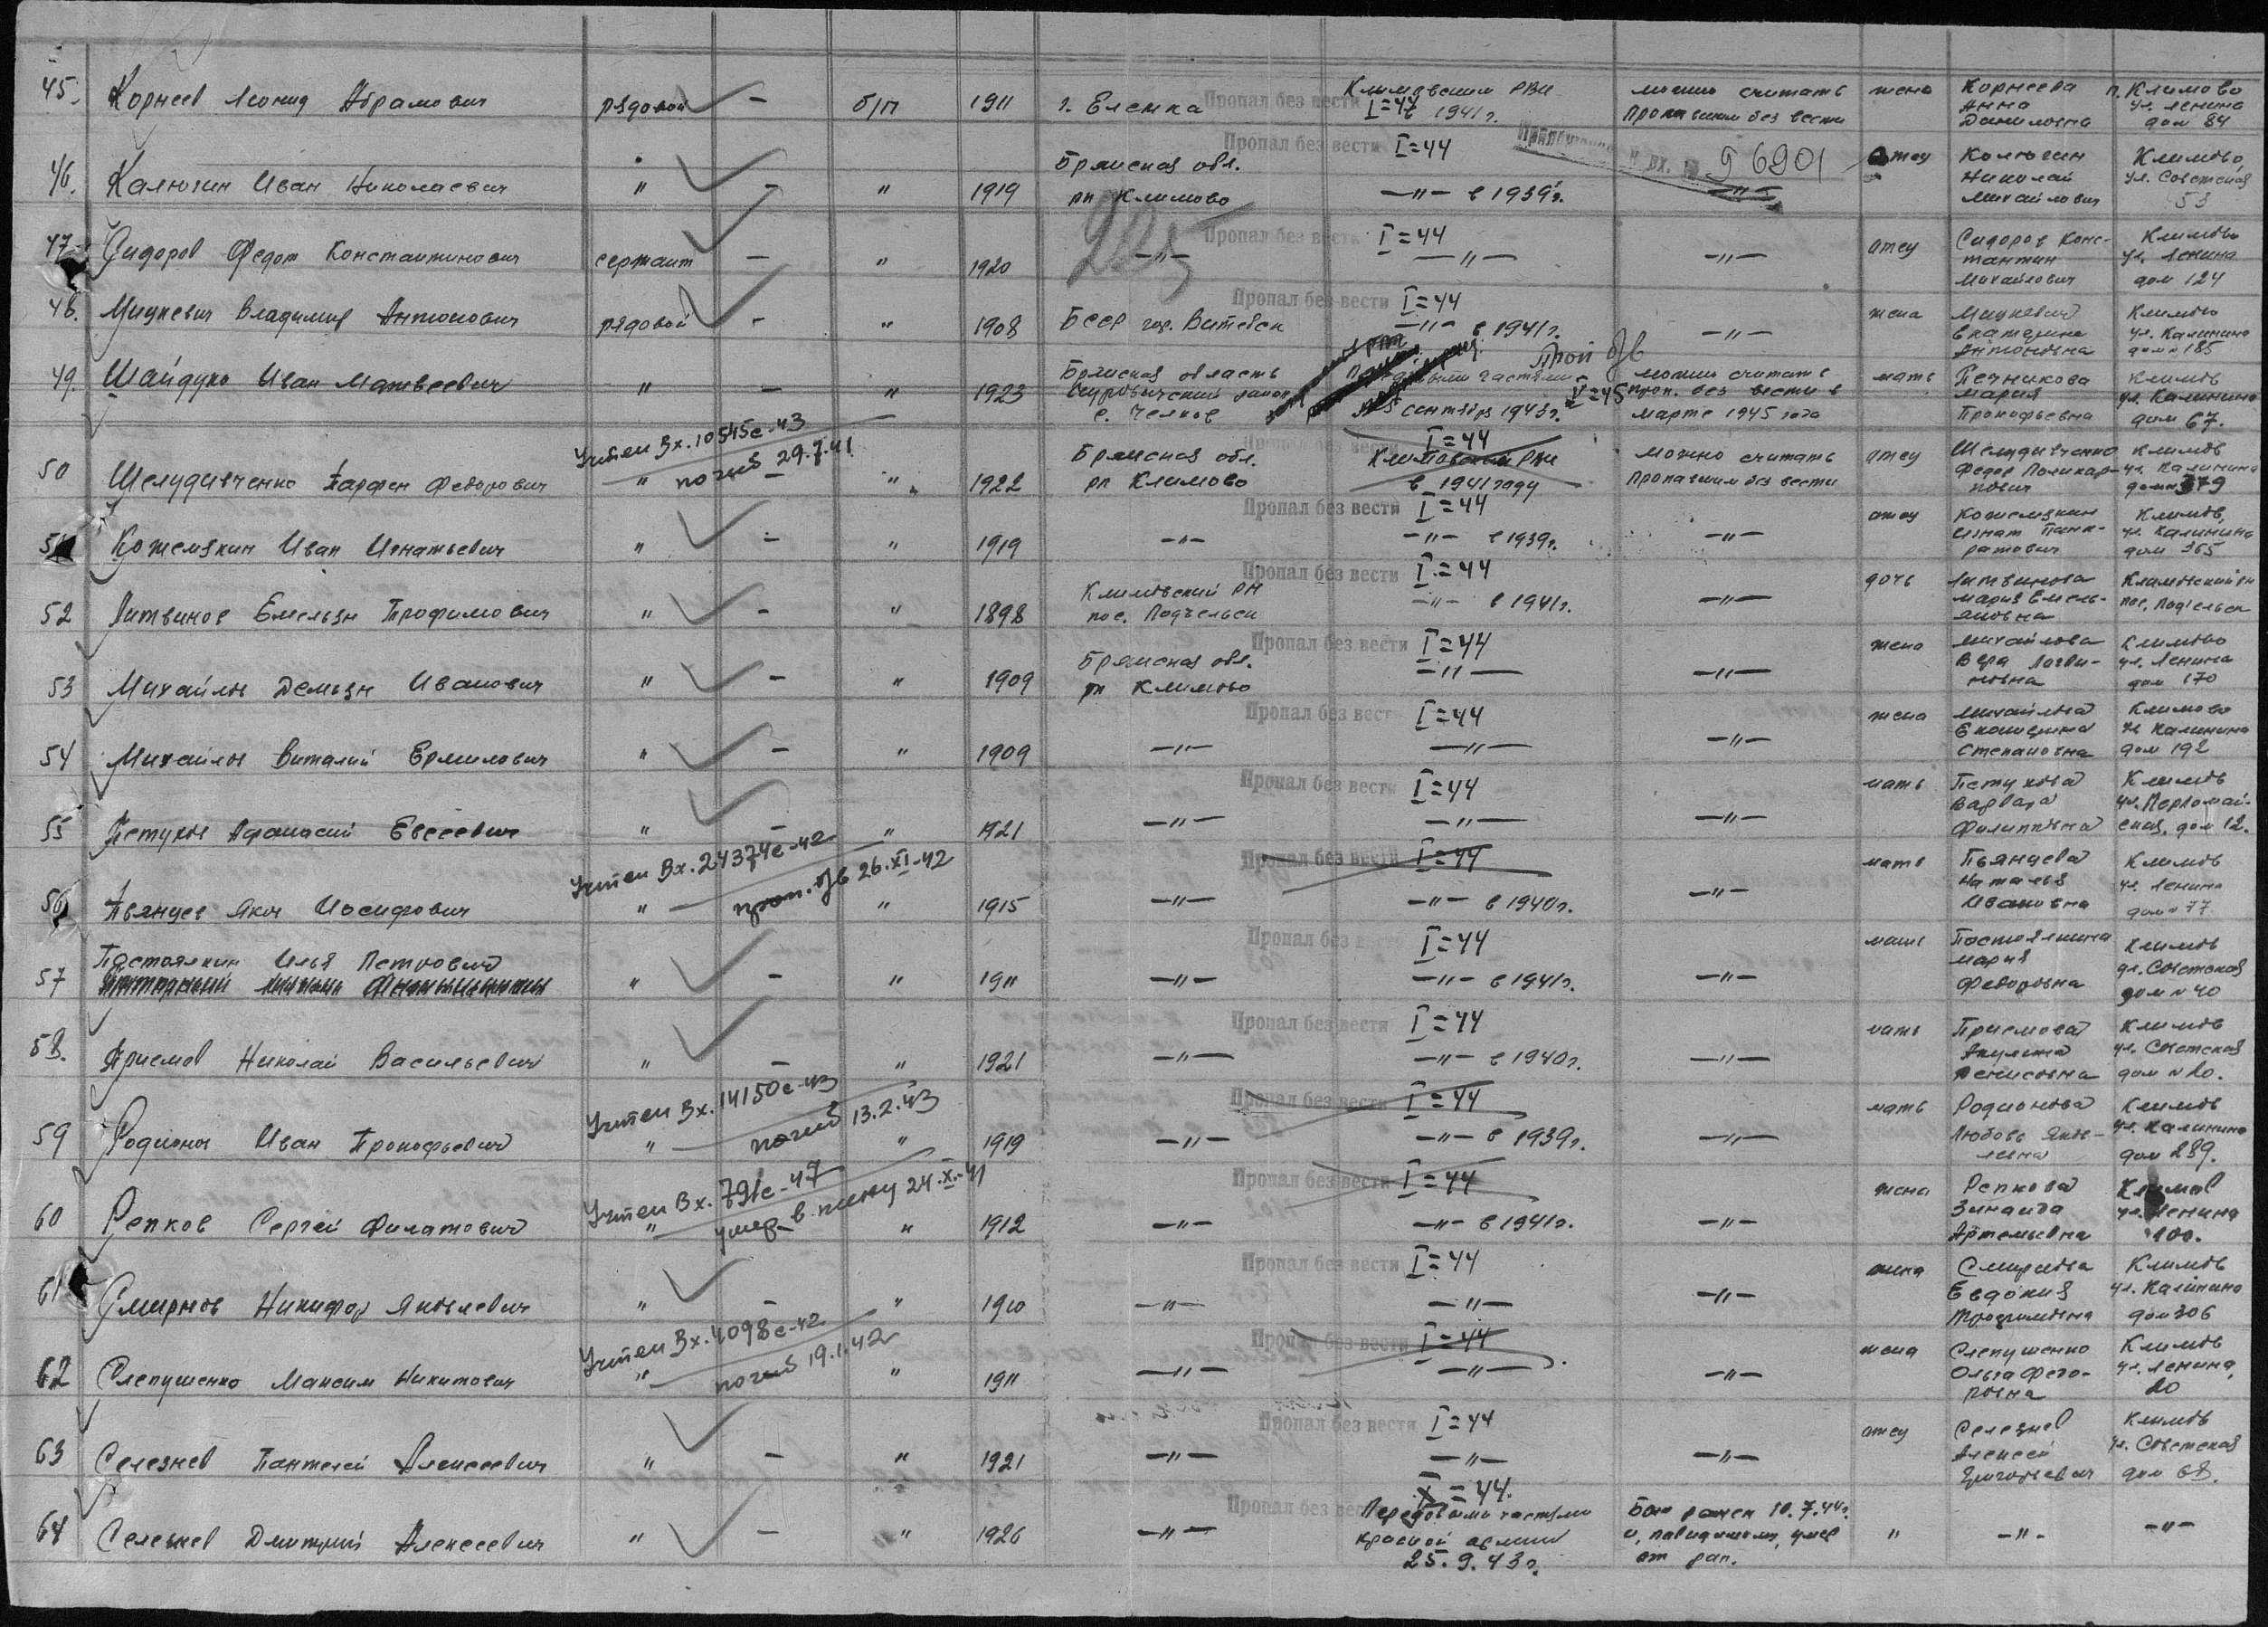 45. Корнеев Леонид Абрамович рядовой — б/п 1911 г. Еленка Климовский РВК 1941 г. можно считать пропавшим без вести жена Корнеева Анна Даниловна п. Климово ул. Ленина дом 84
Пропал без вести I=44
Пропал без вести I=44
вх. 96901
46. Калюгин Иван Николаевич " — " 1919 Брянская обл. рп Климово —"— в 1939 г. —"— отец Калюгин Николай Михайлович Климово, ул. Советская 53
225
Пропал без вести I=44
47. Сидоров Федот Константинович сержант — " 1920 —"— —"— —"— отец Сидоров Константин Михайлович Климово ул. Ленина дом 124
Пропал без вести I=44
48. Мицкевич Владимир Антонович рядовой — " 1908 БССР гор. Витебск —"— в 1941 г. —"— жена Мицкевич Екатерина Антоновна Климово ул. Калинина дом 185
49. Шайдуко Иван Матвеевич " — " 1923 Брянская область район с. Челхов частями сентябрь 1943 г. проп б/в V=45 можно считать проп. без вести в марте 1945 года мать Печникова Мария Прокофьевна Климов ул. Калинина дом 67.
Учтен Вх. 10545с-43
погиб 29.7.41
Пропал без вести I=44
50 Шелудивченко Парфен Федорович " — " 1922 Брянская обл. рп Климово Климовский РВК в 1941 году можно считать пропавшим без вести отец Шелудивченко Федор Поликарпович Климов ул. Калинина дом 379
Пропал без вести I=44
51 Кожемякин Иван Игнатьевич " — " 1919 —"— —"— в 1939 г. —"— отец Кожемякин Игнат Панкратович Климов, ул. Калинина дом 365
Пропал без вести I=44
52 Литвинов Емельян Трофимович " — " 1898 Климовский РН пос. Подъельск —"— в 1941 г. —"— дочь Литвинова Мария Емельяновна Климовский рн пос. Подъельск
Пропал без вести I=44
53 Михайлов Демьян Иванович " — " 1909 Брянская обл. рп Климово —"— —"— жена Михайлова Вера Логвиновна Климово ул. Ленина дом 170
Пропал без вест I=44
54 Михайлов Виталий Ермилович " — " 1909 —"— —"— —"— жена Михайлова Екатерина Степановна Климово ул Калинина дом 192
Пропал без вести I=44
55 Петухов Афанасий Евсеевич " — " 1921 —"— —"— —"— мать Петухова Варвара Филипповна Климов ул. Первомайская, дом 12.
Учтен Вх. 24374с-42
проп. б/в 26.XI-42
Пропал без вести I=44
56 Пьянцев Яков Иосифович " " 1915 —"— —"— в 1940 г. —"— мать Пьянцева Наталья Ивановна Климов ул. Ленина дом 77
Пропал без вести I=44
57 Постоялкин Илья Петрович " — " 1911 —"— —"— в 1941 г. —"— мать Постоялкина Мария Федоровна Климов ул. Советская дом № 40
Пропал без вести I=44
58. Приемов Николай Васильевич " — " 1921 —"— —"— в 1940 г. —"— мать Приемова Акулина Денисовна Климов ул. Советская дом № 20.
Учтен Вх. 14150с-43
погиб 13.2.43
Пропал без вести I=44
59 Родионов Иван Прокофьевич " " 1919 —"— —"— в 1939 г. —"— мать Родионова Любовь Яковлевна Климов ул. Калинина дом 289.
Учтен Вх. 791с-47
умер в плену 24.X-41
Пропал без вести I=44
60 Репков Сергей Филатович " " 1912 —"— —"— в 1941 г. —"— жена Репкова Зинаида Артемьевна Климов ул. Ленина 100.
Пропал без вести I=44
61 Смирнов Никифор Яковлевич " — " 1910 —"— —"— —"— жена Смирнова Евдокия Трофимовна Климов ул. Калинина дом 306
Учтен Вх. 4098с-42
погиб 19.1.42
Пропал без вести I=44
62 Слепушенко Максим Никитович " " 1911 —"— —"— —"— жена Слепушенко Ольга Федоровна Климов ул. Ленина, 20
Пропал без вести I=44
63 Селезнев Пантелей Алексеевич " — " 1921 —"— —"— —"— отец Селезнев Алексей Григорьевич Климов ул. Советская дом 68.
Пропал без вести X=44.
64 Селезнев Дмитрий Алексеевич " — " 1926 —"— Передовыми частями Красной армии 25.9.43 г. Был ранен 10.7.44 г. и, повидимому, умер от ран. " —"— —"—